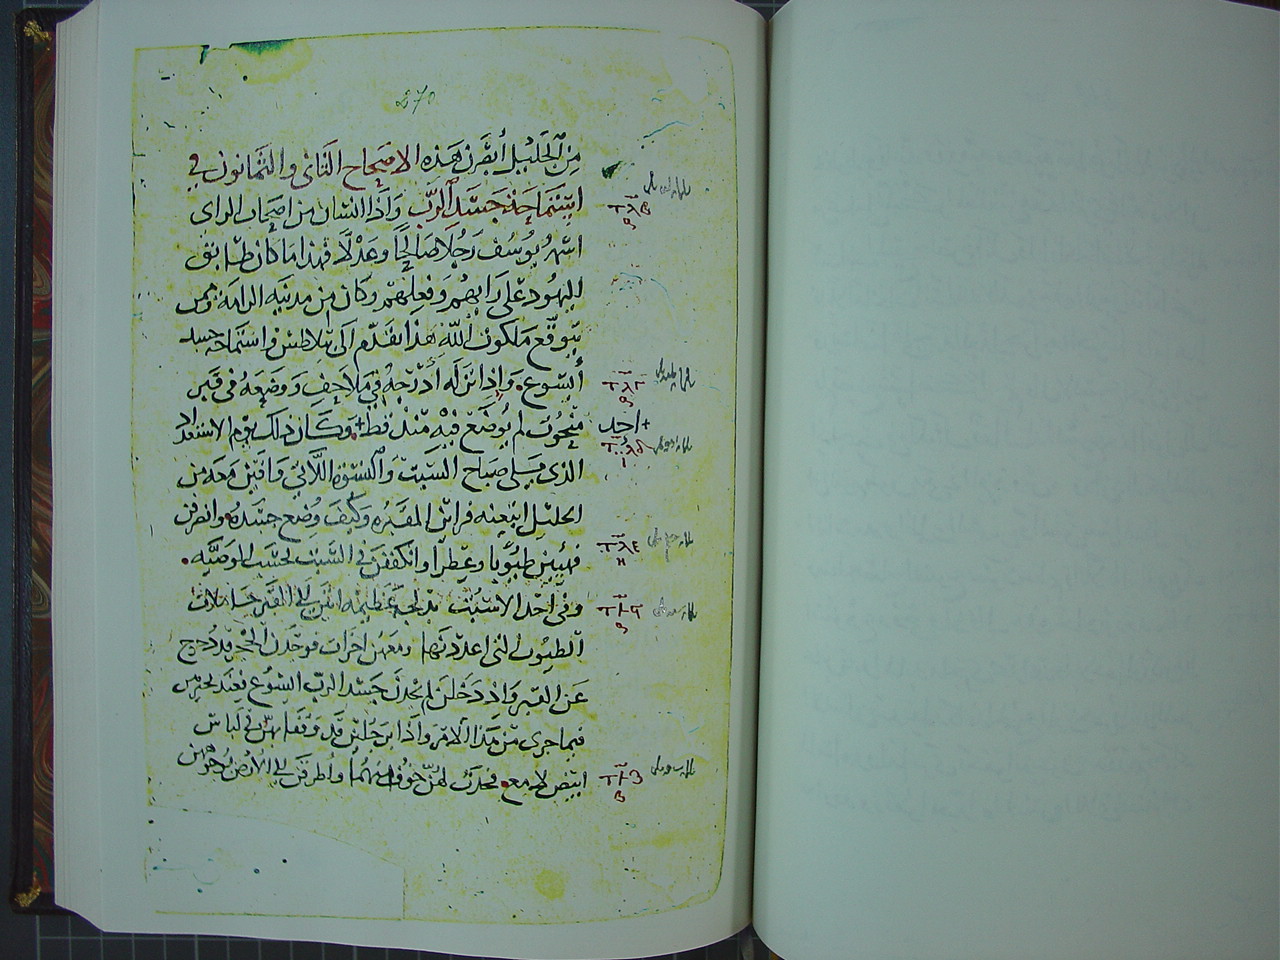 من الجليل أبصرن هذه الاصحاح الثاني والثمانون في
استماحة جسد الرب وَاذا انسان من اصحاب الراى
اسمه يوسف رجلا صالحًا وعدلًا فهذا ما كان طابق
اليهود على رايهم وفعلهم وكان من مدينه الرامة وممن
يتوقع ملكوت الله هذا تقدم الى بلاطس واستماحه جسد
أيسوع وَاذا نزله أدرجه في ملاحف ووضعه في قبر
منحوت لم يوضع فيه منذ قط وكان ذلك يوم الاستعداد
الذى يلى صباح السبت والنسوة اللاتي وافين معه من
الجليل اتبعنه فراين المقبره وكيف وضع جسده وانصرفن
فهيين طيوبًا وعطرًا وانكففن في السبت لحسب الوصيه
وفي احد الاسبت بدلجه عظيمه اتين الى القبر حاملات
الطيوب التى اعددنها ومعهن اخرات فوجدن الحجر قد دحرج
عن القبر وَاذ دَخلن لم يجدن جسد الرب ايسوع فعند تحيرهن
فيما جرى من هَذا الامر وَاذا برجلين قد وقفا بهن في لباس
ابيض لامع فحدث لهن خوف منهما واطرقن الى الارض وجوههن
احد